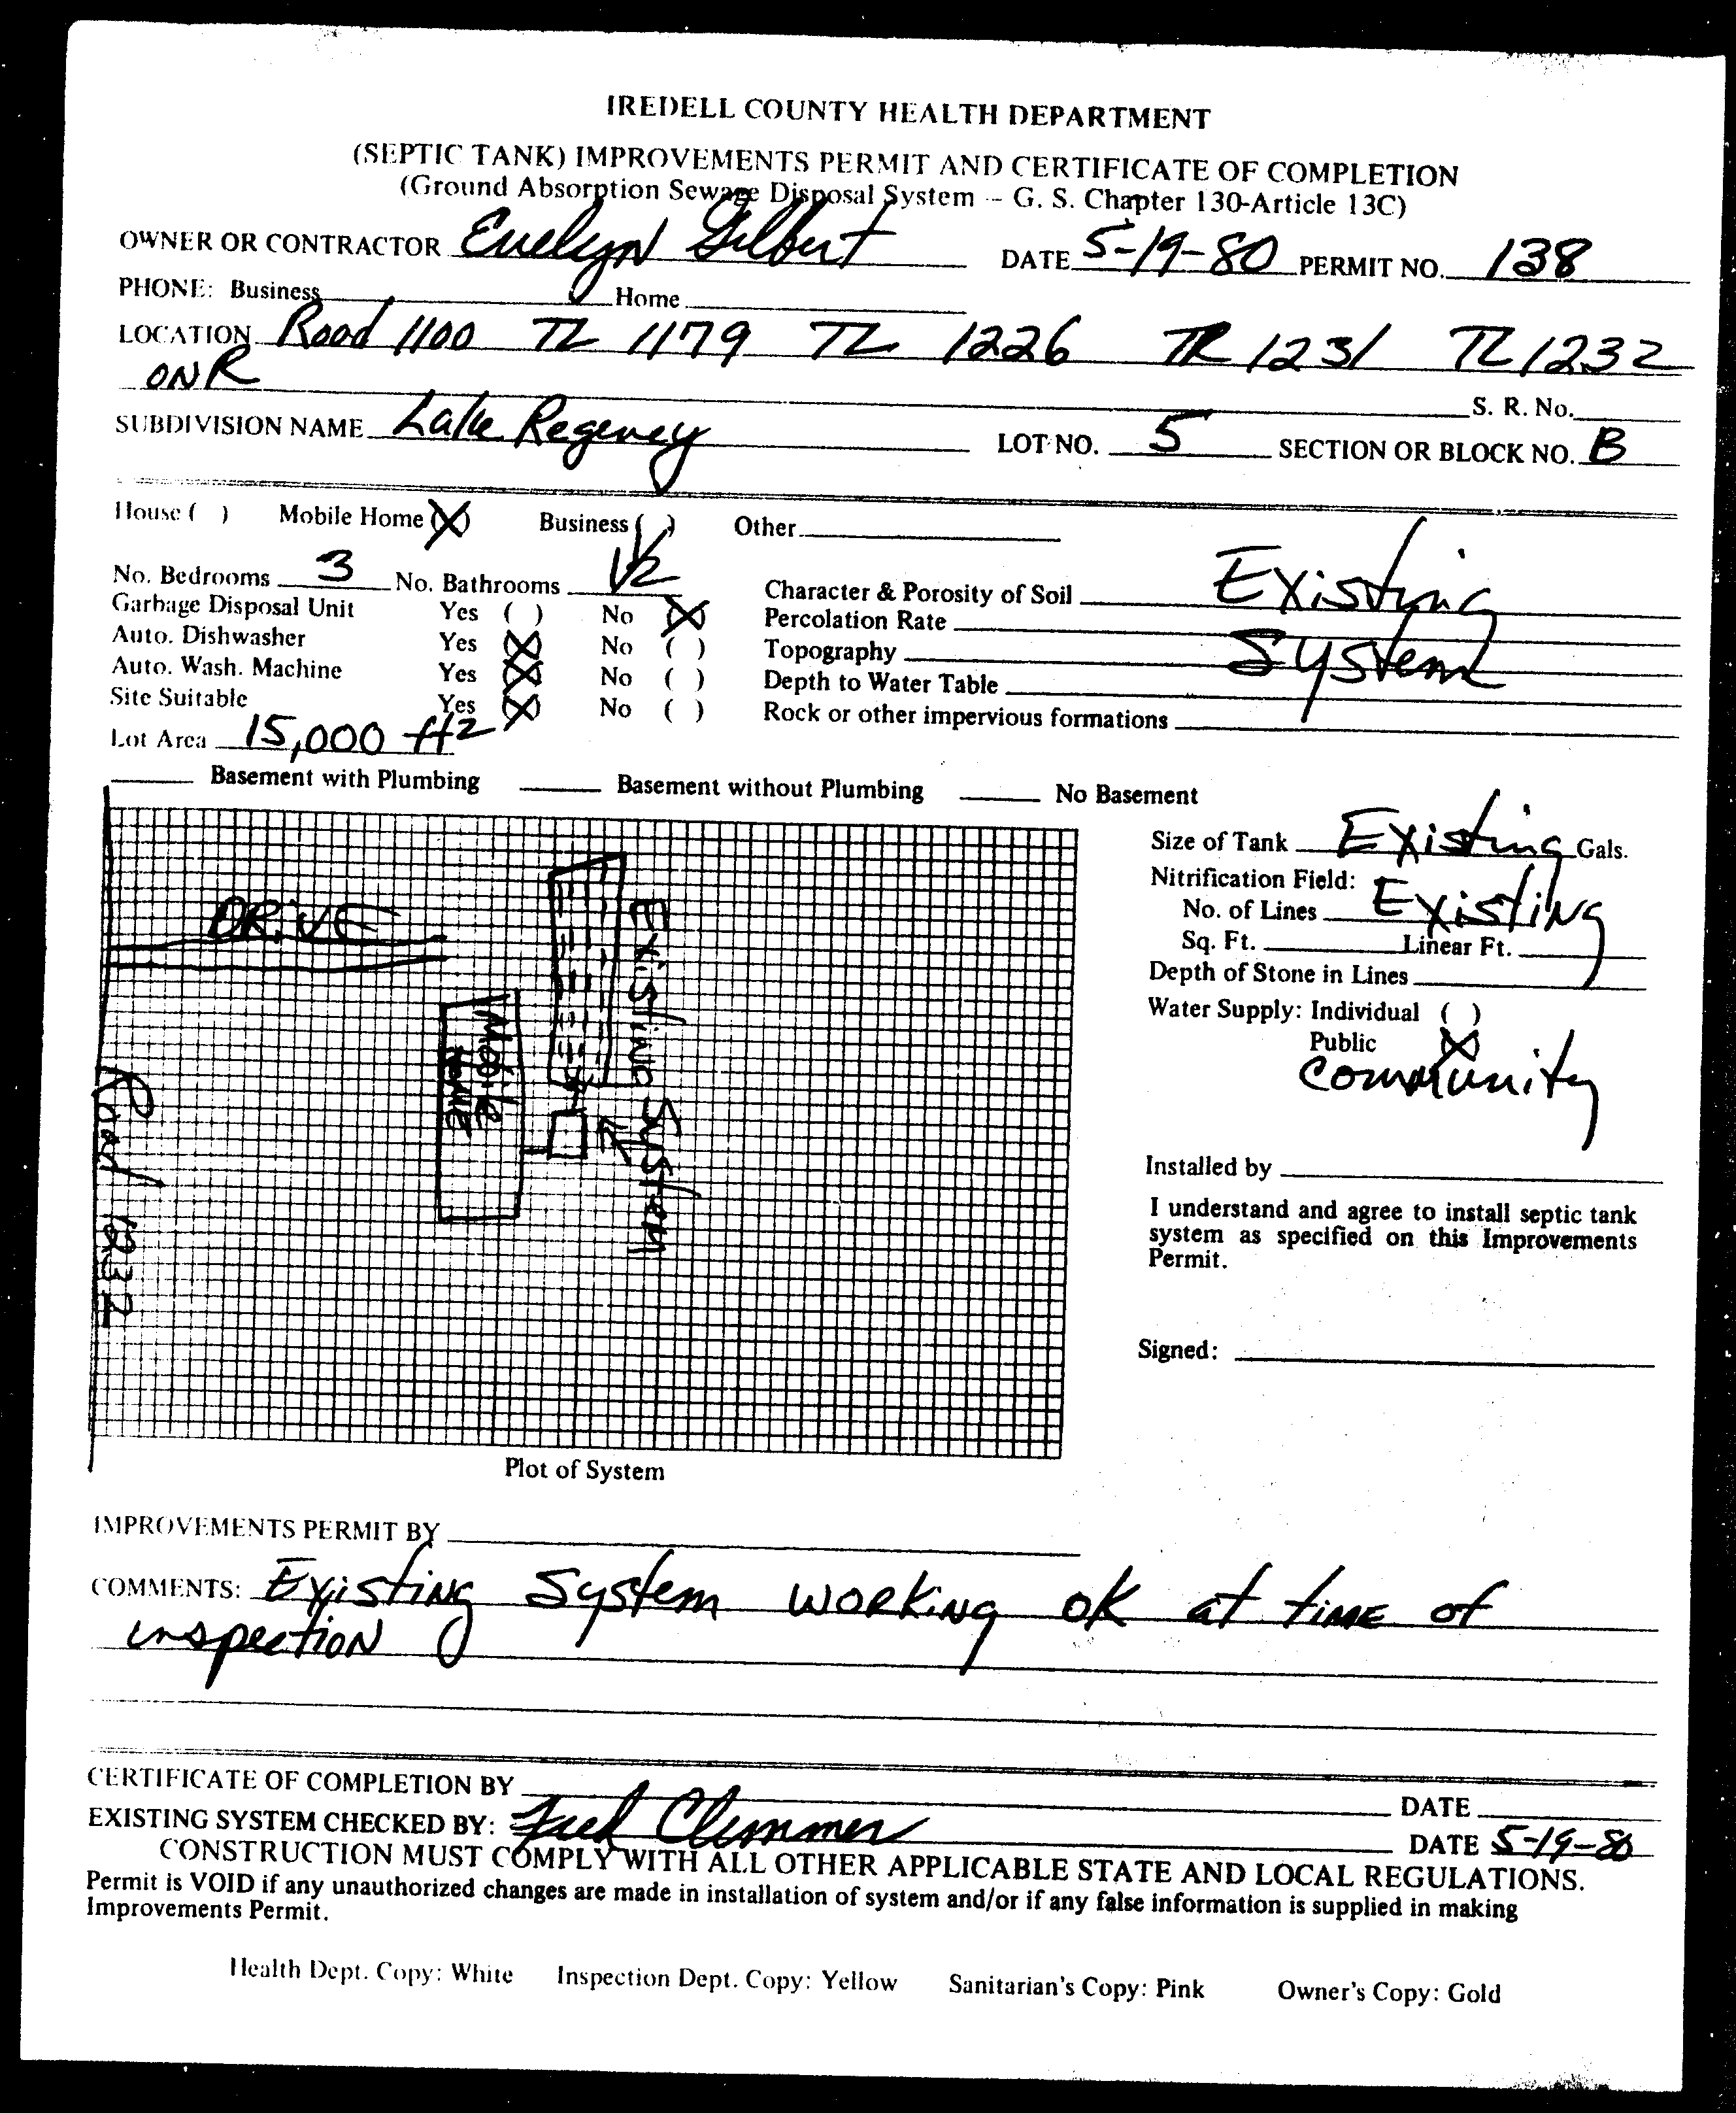 IREDELL COUNTY HEALTH DEPARTMENT
(SEPTIC TANK) IMPROVEMENTS PERMIT AND CERTIFICATE OF COMPLETION
(Ground Absorption Sewage Disposal System -- G. S. Chapter 130-Article 13C)
OWNER OR CONTRACTOR Evelyn Gilbert DATE 5-19-80 PERMIT NO. 138
PHONE: Business Home
LOCATION Road 1100 TL 1179 TL 1226 TR 1231 TL 1232
ON R
S. R. No.
SUBDIVISION NAME Lake Regency LOT NO. 5 SECTION OR BLOCK NO. B
House ( ) Mobile Home (X) Business ( ) Other
No. Bedrooms 3 No. Bathrooms Character & Porosity of Soil Existing
Garbage Disposal Unit Yes ( ) No (X) Percolation Rate
Auto. Dishwasher Yes (X) No ( ) Topography System
Auto. Wash. Machine Yes (X) No ( ) Depth to Water Table
Site Suitable Yes (X) No ( ) Rock or other impervious formations
Lot Area 15,000 ft2
Basement with Plumbing Basement without Plumbing No Basement
Size of Tank Existing Gals.
Nitrification Field:
No. of Lines Existing
Sq. Ft. Linear Ft.
Depth of Stone in Lines
Water Supply: Individual ( )
Public (X)
Community
Installed by
I understand and agree to install septic tank
system as specified on this Improvements
Permit.
Signed:
DRIVE
Existing System
Mobile
Home
Road 1232
Plot of System
IMPROVEMENTS PERMIT BY
COMMENTS: Existing System working ok at time of
inspection
CERTIFICATE OF COMPLETION BY DATE
EXISTING SYSTEM CHECKED BY: Fred Clemmer DATE 5-19-80
CONSTRUCTION MUST COMPLY WITH ALL OTHER APPLICABLE STATE AND LOCAL REGULATIONS.
Permit is VOID if any unauthorized changes are made in installation of system and/or if any false information is supplied in making
Improvements Permit.
Health Dept. Copy: White Inspection Dept. Copy: Yellow Sanitarian's Copy: Pink Owner's Copy: Gold